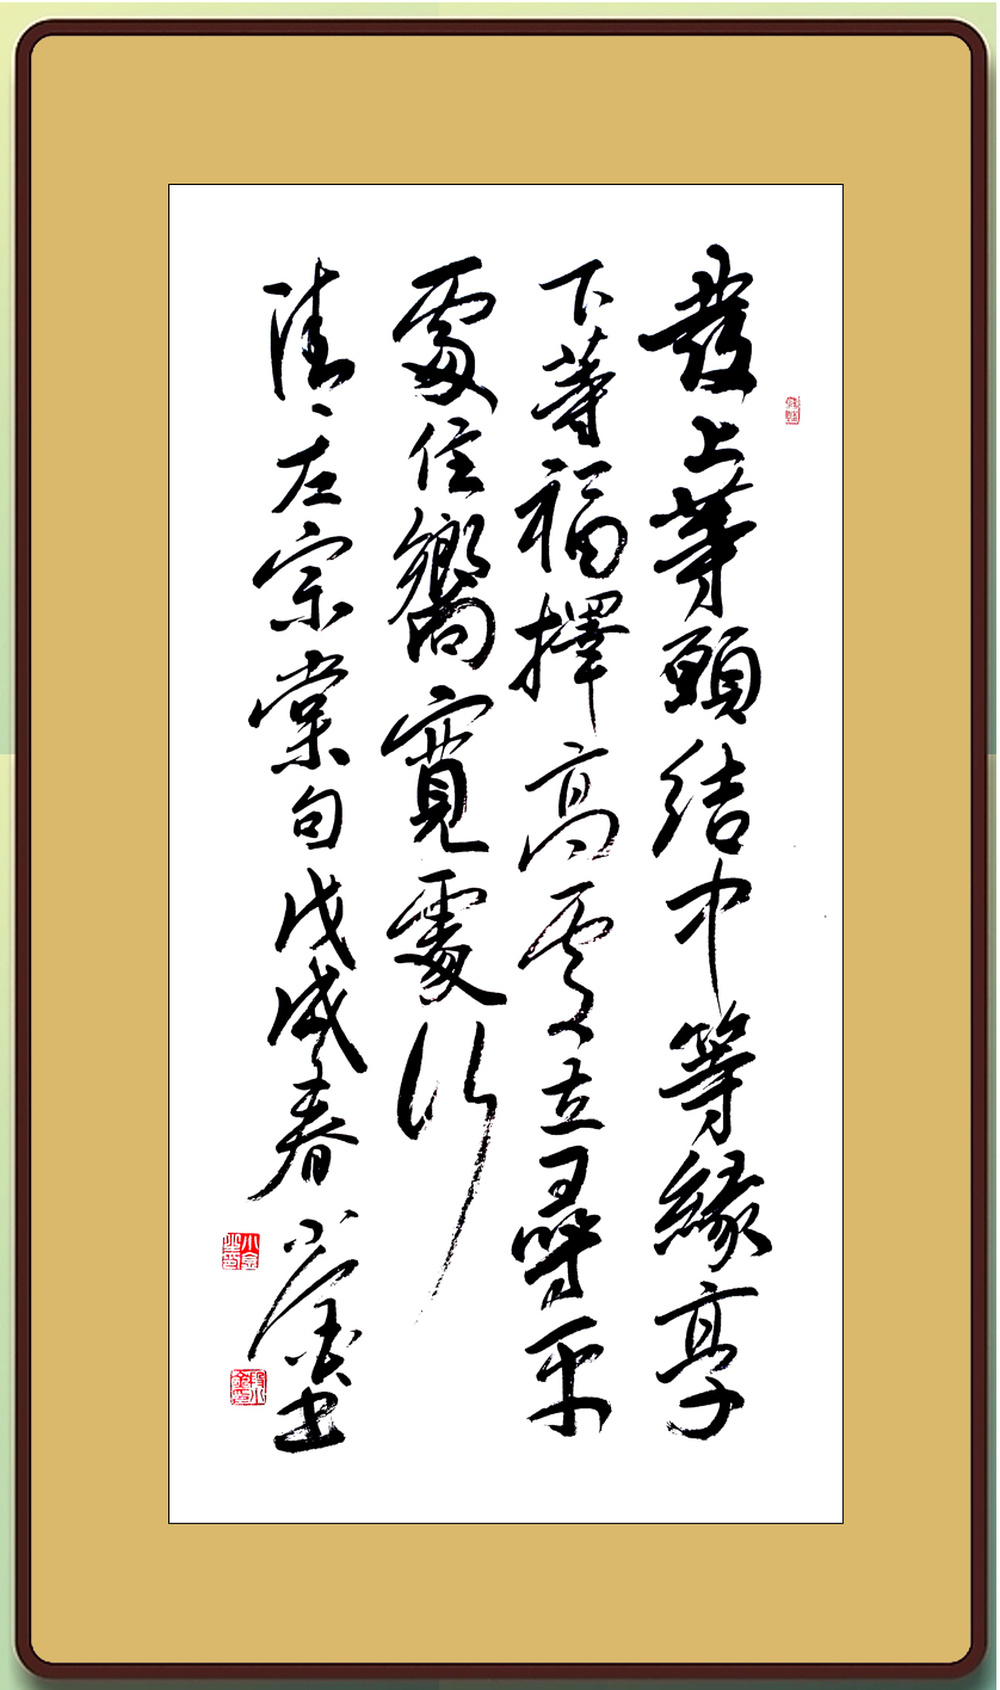 發上等願結中等緣享
下等福擇高處立尋平
處住嚮寬處行
清左宗棠句戊戌春小金書
小金